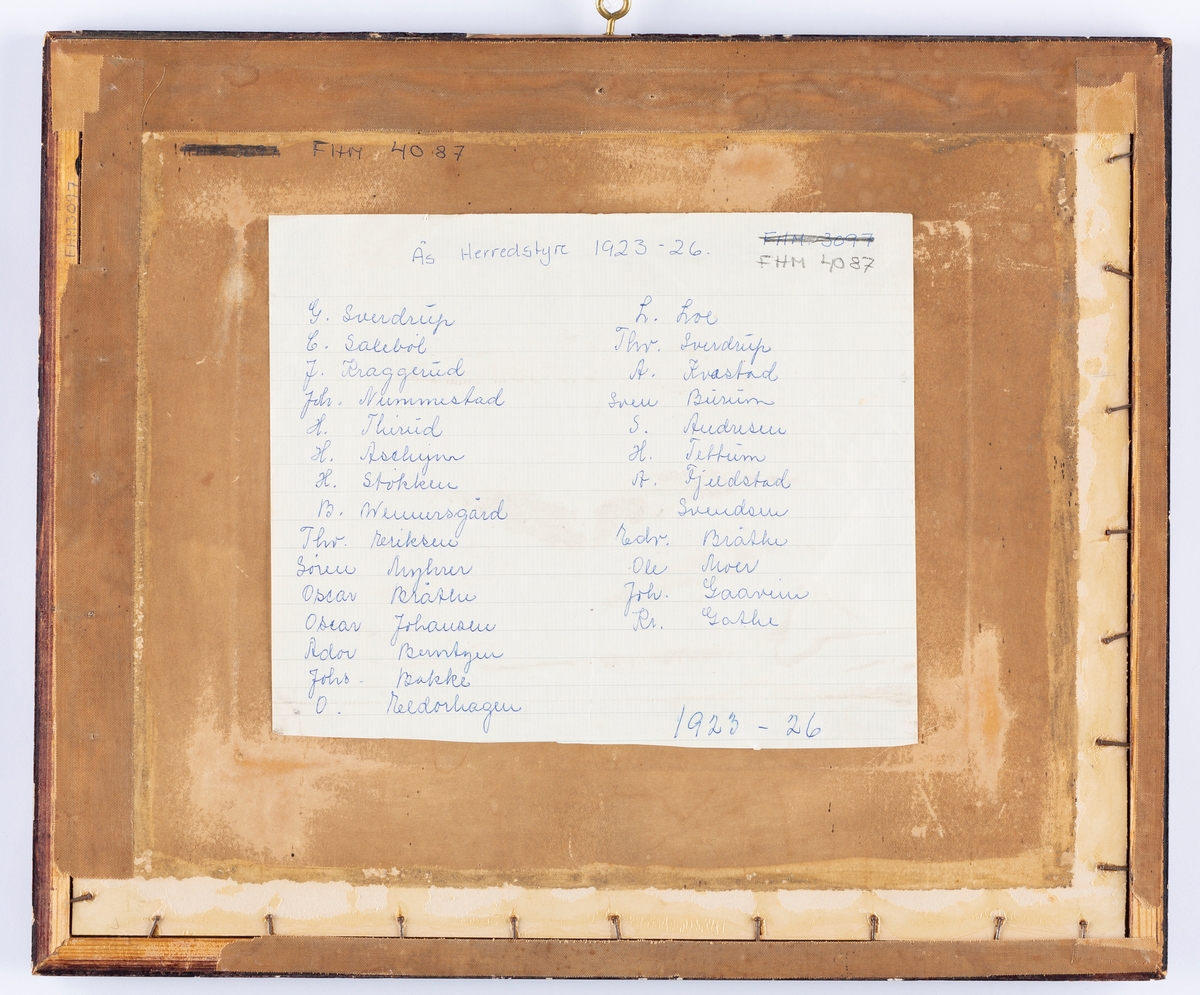 FHM 4087
FHM 3097
Ås Herredstyre 1923-26.
FHM 3097
FHM 4087
G. Sverdrup
C. Salebøl
J. Kraggerud
Joh. Nummestad
H. Thirud
H. Aschjem
H. Støkken
B. Wennersgård
Thv. Eriksen
Søren Myhrer
Oscar Bråthe
Oscar Johansen
Ador Berntzen
Johs. Bakke
O. Eldorhagen
L. Loe
Thv. Sverdrup
A. Kvæstad
Sven Burum
S. Andresen
H. Tettum
A. Fjeldstad
Svendsen
Edv. Bråthe
Ole Moer
Joh. Gaarum
Kr. Gathe
1923 - 26